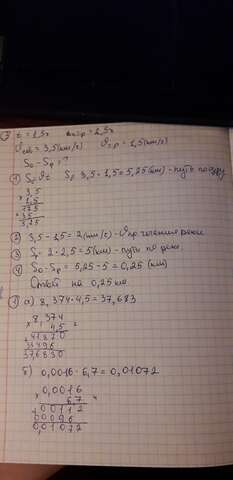 t = 1,5ч
= 2,5ч
= 3,5 (км/ч) = 1,5 (км/ч)
- = ?
3,5 · 1,5 = 5,25 (км) - путь по озеру
× 3,5
1,5
175
+ 35
5,25
② 3,5 - 1,5 = 2 (км/ч) - пр течения реки
③ 2 · 2,5 = 5 (км) - путь по реке
④ 5,25 - 5 = 0,25 (км)
Ответ на 0,25 км
① а) 8,374 · 4,5 = 37,683
× 8,374
4,5
+ 41870
33496
37,6830
б) 0,0016 · 6,7 = 0,01072
× 0,0016
6,7
+ 00112
00096
0,01072